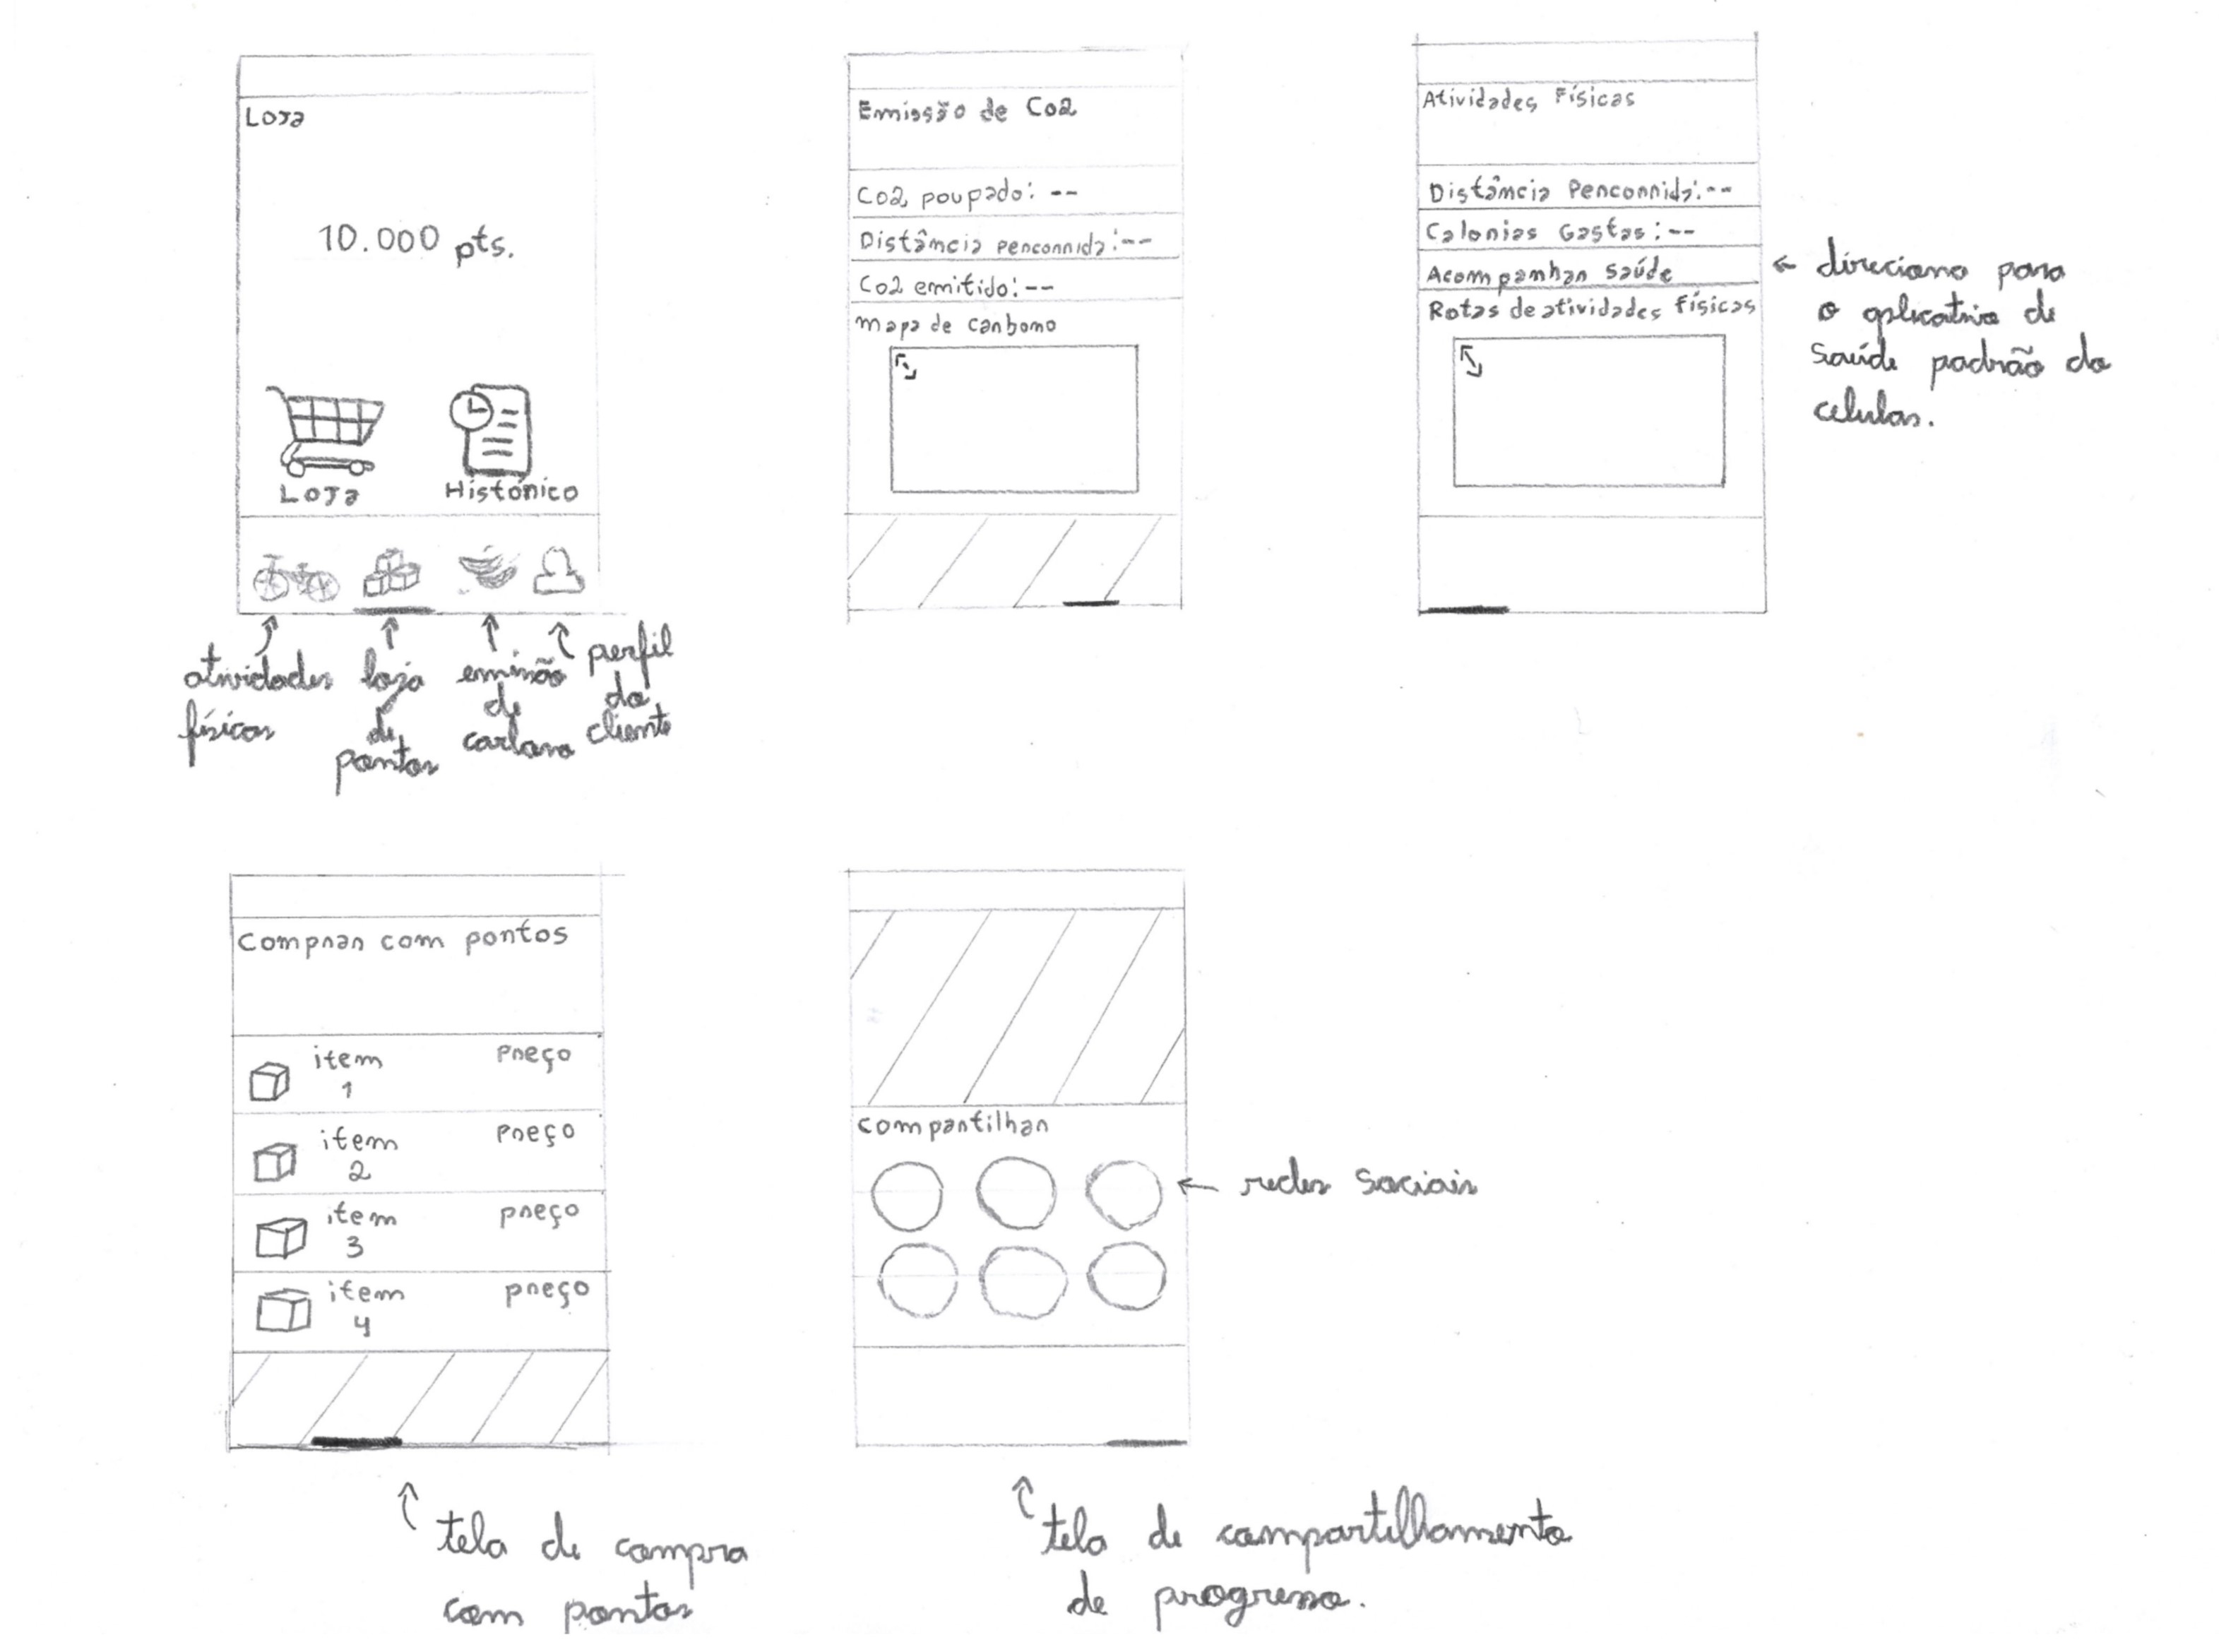 Loja
10.000 pts.
Loja
Histórico
atividades
físicas
loja
de
pontos
emissão
de
carbono
perfil
do
cliente
Emissão de Co2
Co2 poupado: --
Distância percorrida: --
Co2 emitido: --
mapa de carbono
Atividades Físicas
Distância Percorrida: --
Calorias Gastas: --
Acompanhar saúde
Rotas de atividades físicas
← direciona para
o aplicativo de
saúde padrão do
celular.
Comprar com pontos
item preço
1
item preço
2
item preço
3
item preço
4
tela de compra
com pontos
Compartilhar
← redes sociais
tela de compartilhamento
de progresso.